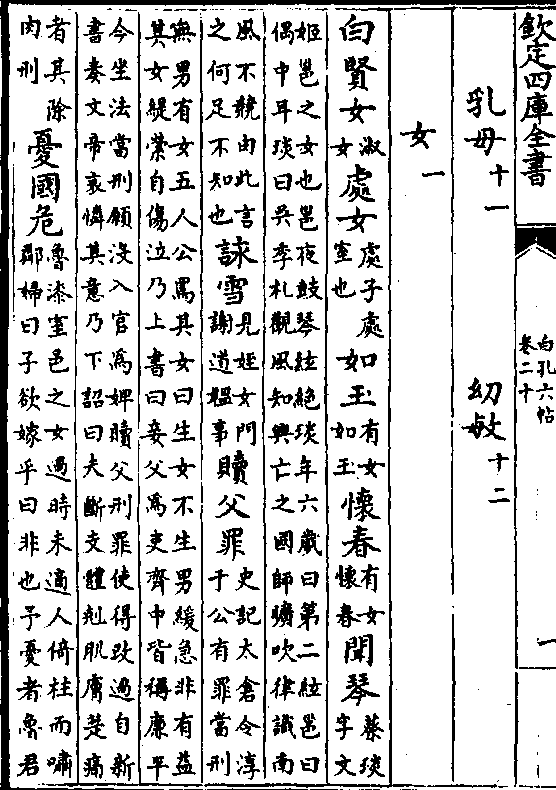 欽定四庫全書
白孔六帖
卷二十
一
乳母十一 幼敏十二
女一
白賢女淑女處女處子處室也如玉有女如玉懷春有女懷春聞琴蔡琰字文
姬邕之女也邕夜鼓琴絃絶琰年六歲曰第二絃邕曰
偶中耳琰曰吳季札觀風知興亡之國師曠吹律識南
風不競由此言之何足不知也詠雪見姪女門謝道韞事贖父罪史記太倉令淳于公有罪當刑
無男有女五人公罵其女曰生女不生男緩急非有益
其女緹縈自傷泣乃上書曰妾父爲吏齊中皆稱廉平
今坐法當刑願没入官爲婢贖父刑罪使得改過自新
書奏文帝哀憐其意乃下詔曰夫斷支體剋肌膚楚痛
者其除肉刑憂國危魯漆室邑之女過時未適人倚柱而嘯鄰婦曰子欲嫁乎曰非也予憂者魯君